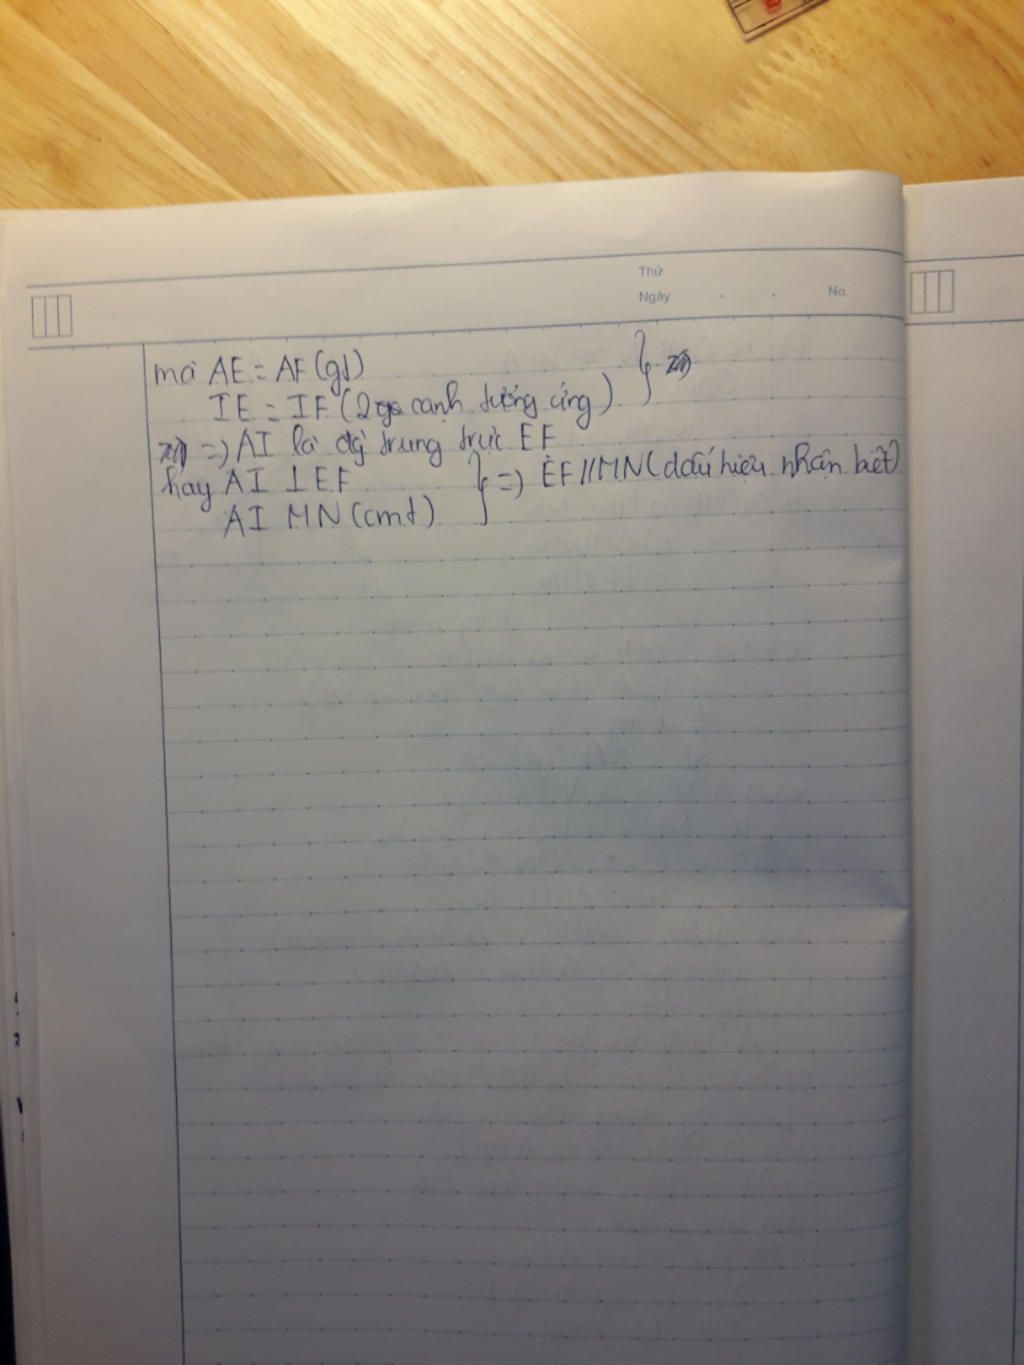 Thứ
Ngày . . No.
mà AE = AF (gt)
IE = IF (2 cạnh tương ứng)
=> AI là đg trung trực EF
hay AI ⊥ EF
AI MN (cmt)
=> EF // MN (dấu hiệu nhận biết)